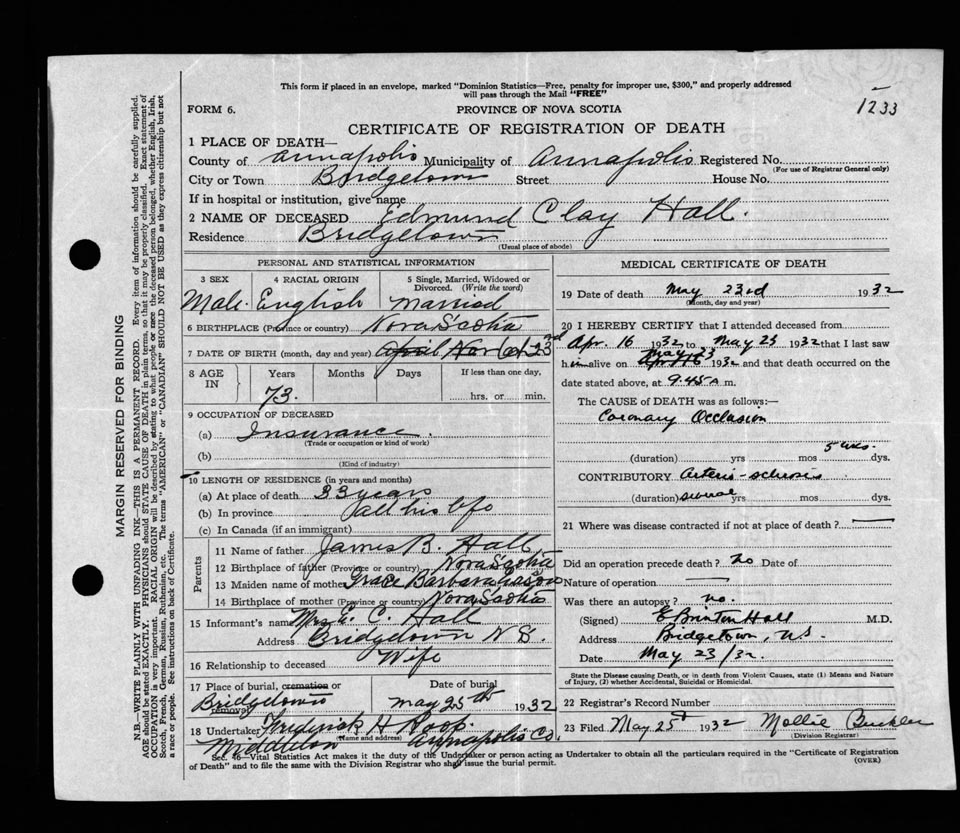 This form if placed in an envelope, marked "Dominion Statistics—Free, penalty for improper use, $300," and properly addressed
will pass through the Mail "FREE"
FORM 6.
PROVINCE OF NOVA SCOTIA
1233
CERTIFICATE OF REGISTRATION OF DEATH
1 PLACE OF DEATH—
County of Annapolis Municipality of Annapolis Registered No.
(For use of Registrar General only)
City or Town Bridgetown Street House No.
If in hospital or institution, give name
2 NAME OF DECEASED Edmund Clay Hall.
Residence Bridgetown
(Usual place of abode)
PERSONAL AND STATISTICAL INFORMATION
3 SEX 4 RACIAL ORIGIN 5 Single, Married, Widowed or Divorced. (Write the word)
Male. English Married
6 BIRTHPLACE (Province or country) Nova Scotia
7 DATE OF BIRTH (month, day and year) April 23nd
8 AGE IN Years Months Days If less than one day,
73. hrs. or min.
9 OCCUPATION OF DECEASED
(a) Insurance.
(Trade or occupation or kind of work)
(b)
(Kind of industry)
10 LENGTH OF RESIDENCE (in years and months)
(a) At place of death 33 years
(b) In province all his life
(c) In Canada (if an immigrant)
Parents
11 Name of father James B. Hall
12 Birthplace of father (Province or country) Nova Scotia
13 Maiden name of mother Grace Barbara
14 Birthplace of mother (Province or country) Nova Scotia
15 Informant's name Mrs E. C. Hall
Address Bridgetown N S.
16 Relationship to deceased Wife
17 Place of burial, cremation or removal Date of burial
Bridgetown May 25th 1932
18 Undertaker Frederick H Roop.
(Name and address)
Middleton Annapolis Co.
MEDICAL CERTIFICATE OF DEATH
19 Date of death May 23rd 1932
(Month, day and year)
20 I HEREBY CERTIFY that I attended deceased from
Apr. 16 1932 to May 23 1932 that I last saw
May 23
him alive on Apr 16 1932 and that death occurred on
date stated above, at 9.45 a m.
The CAUSE OF DEATH was as follows:—
Coronary Occlusion
(duration) yrs mos 5 wks. dys.
CONTRIBUTORY Arterio-sclerosis
(duration) several yrs mos dys.
21 Where was disease contracted if not at place of death? —
Did an operation precede death? No Date of
Nature of operation —
Was there an autopsy? no.
(Signed) E Brinton Hall M.D.
Address Bridgetown, N.S.
Date May 23/32.
State the Disease causing Death, or in death from Violent Causes, state (1) Means and Nature
of Injury, (2) whether Accidental, Suicidal or Homicidal.
22 Registrar's Record Number
23 Filed May 25th 1932 Mollie Buckler
(Division Registrar)
Sec. 46—Vital Statistics Act makes it the duty of the Undertaker or person acting as Undertaker to obtain all the particulars required in the "Certificate of Registration
of Death" and to file the same with the Division Registrar who shall issue the burial permit.
(OVER)
MARGIN RESERVED FOR BINDING
N.B.—WRITE PLAINLY WITH UNFADING INK—THIS IS A PERMANENT RECORD. Every item of information should be carefully supplied.
AGE should be stated EXACTLY. PHYSICIANS should STATE CAUSE OF DEATH in plain terms, so that it may be properly classified. Exact statement of
OCCUPATION is very important. RACIAL ORIGIN will be described by stating to what people or race the deceased person belonged, whether English, Irish,
Scotch, French, German, Russian, Ruthenian, etc. The terms "AMERICAN" or "CANADIAN" SHOULD NOT BE USED as they express citizenship but not
a race or people. See instructions on back of Certificate.